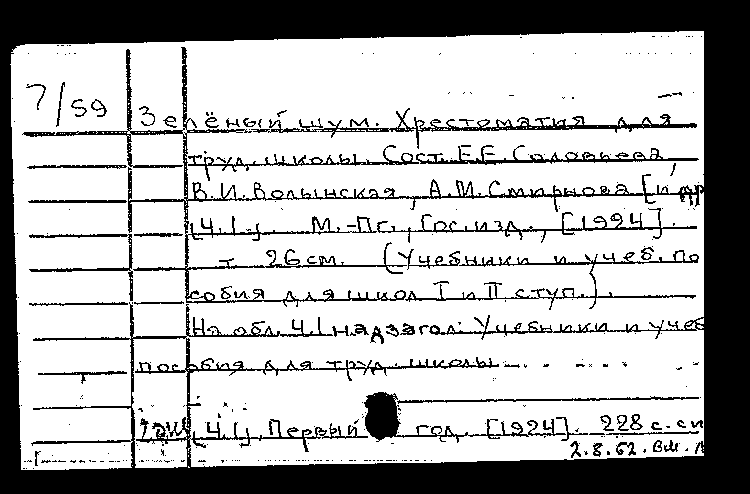 7/59
Зелёный шум. Хрестоматия для
труд. школы. Сост. Е.Е. Соловьева,
В.И. Волынская, А.И. Смирнова [и др
[Ч.1-]. М.-Пг., Гос. изд., [1924].
т 26 см. (Учебники и учеб. по
собия для школ I и II ступ.).
На обл. Ч.1 надзагол: Учебники и учеб
пособия для труд. школы
[Ч.1]. Первый год. [1924]. 228 с. си
2.8.62. Вш.